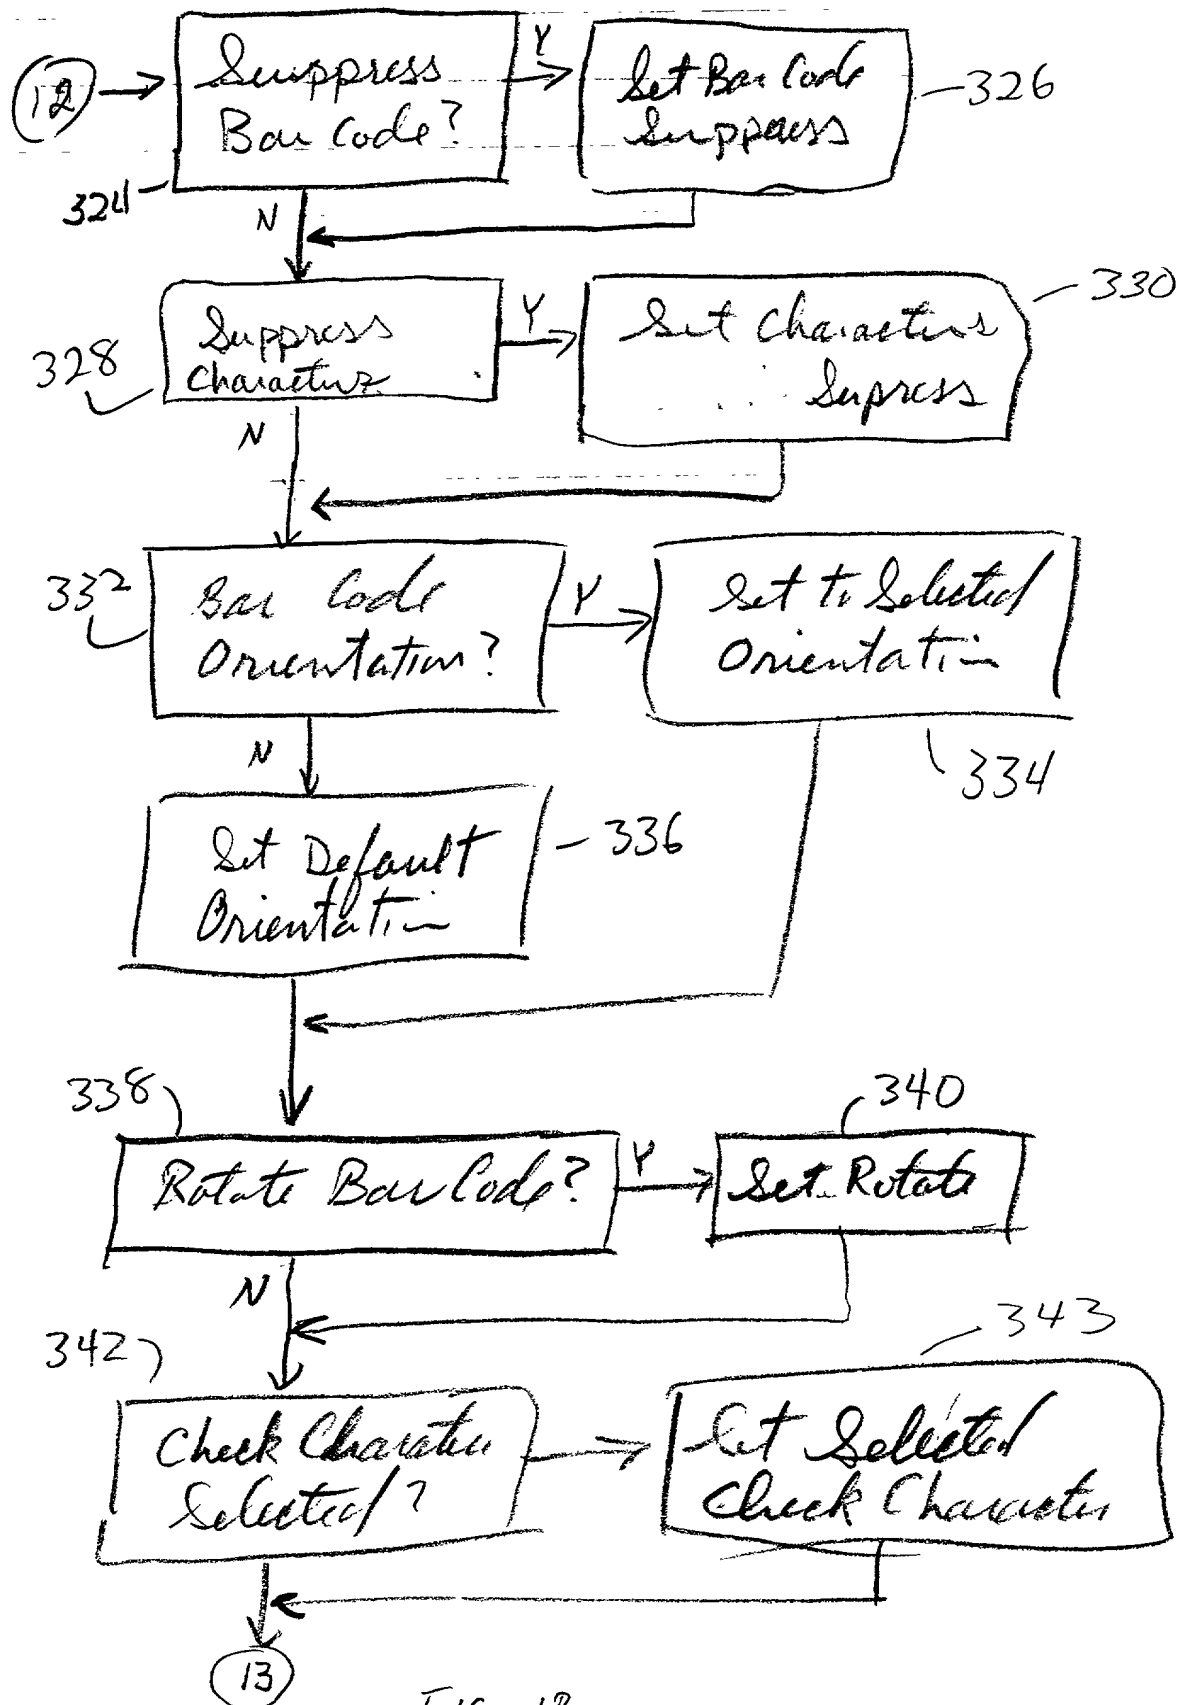 12
Suuppress
Bar Code?
324
Y
Set Bar Code
Suppress
326
N
Suppress
Characters
328
Y
Set Characters
Supress
330
N
Bar Code
Orientation?
332
Y
Set to Selected
Orientation
334
N
Set Default
Orientation
336
338
Rotate Bar Code?
Y
340
Set Rotate
N
342
Check Character
Selected?
343
Set Selected
Check Character
13